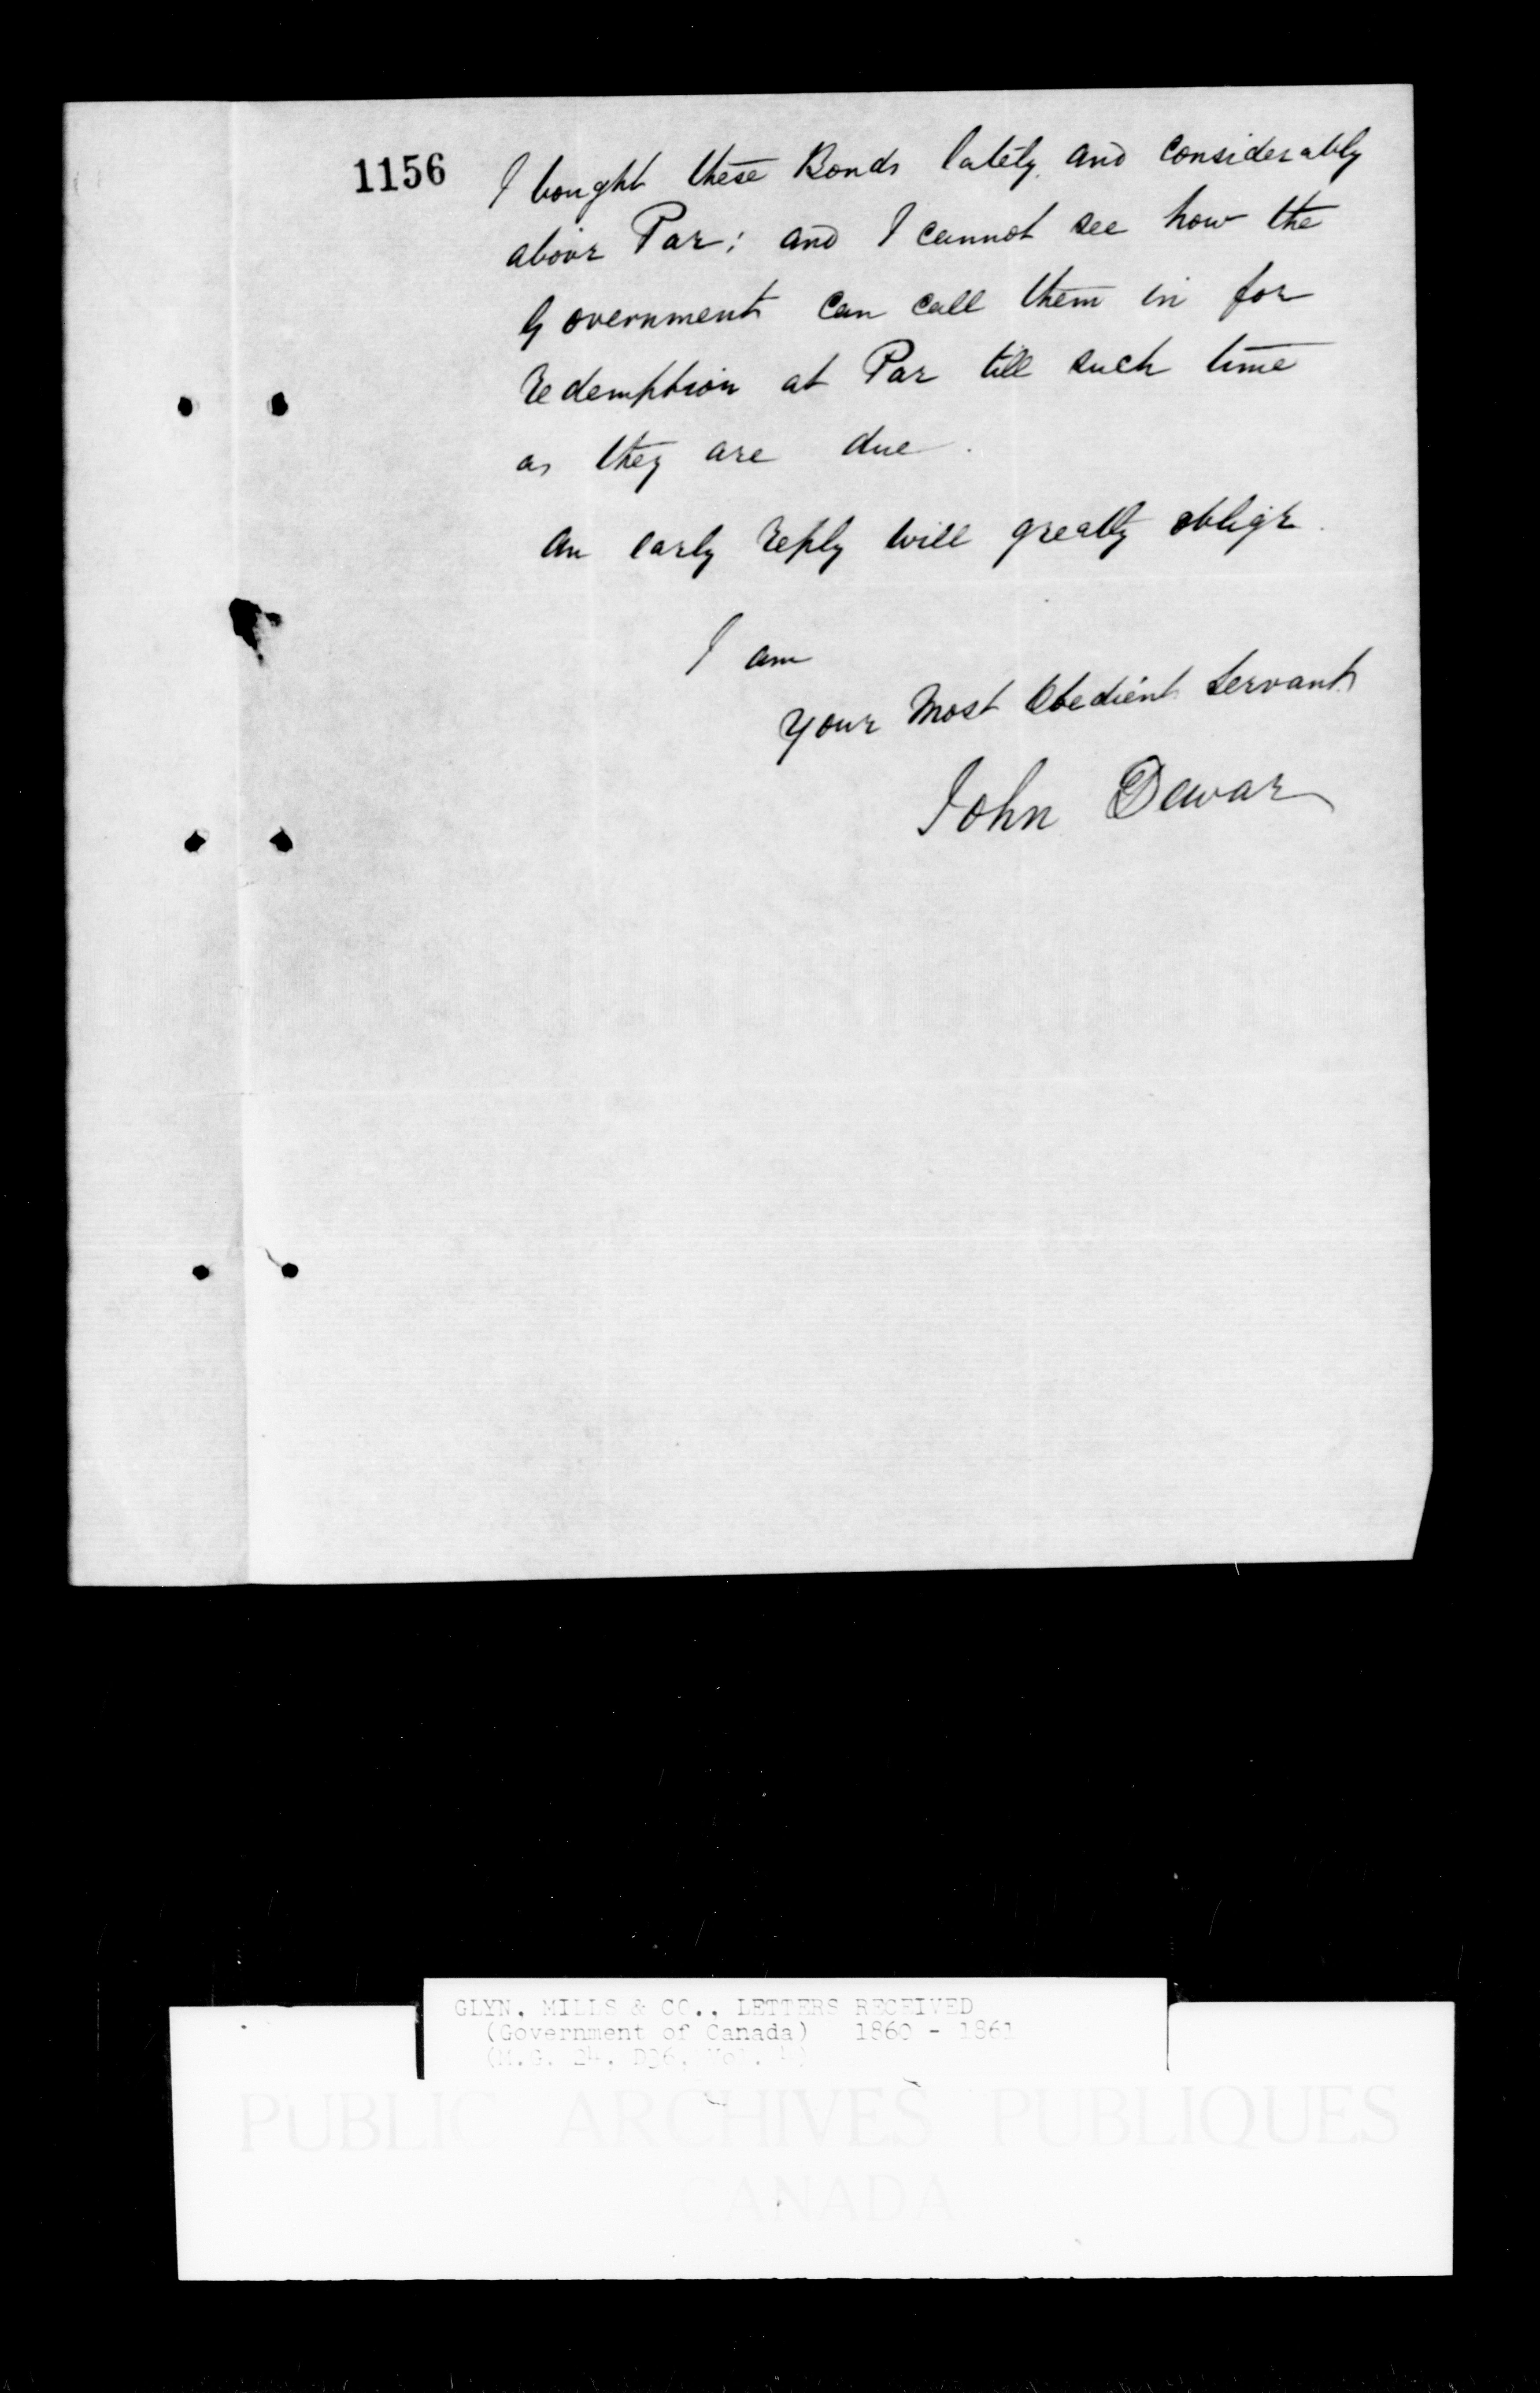 1156
I bought these Bonds lately and considerably
above Par; and I cannot see how the
Government can call them in for
redemption at Par till such time
as they are due.
An early reply will greatly oblige.
I am
Your Most Obedient Servant
John Dewar
GLYN, MILLS & CO., LETTERS RECEIVED
(Government of Canada) 1860 - 1861
(M.G. 24, D36, Vol. 4)
PUBLIC ARCHIVES PUBLIQUES
CANADA